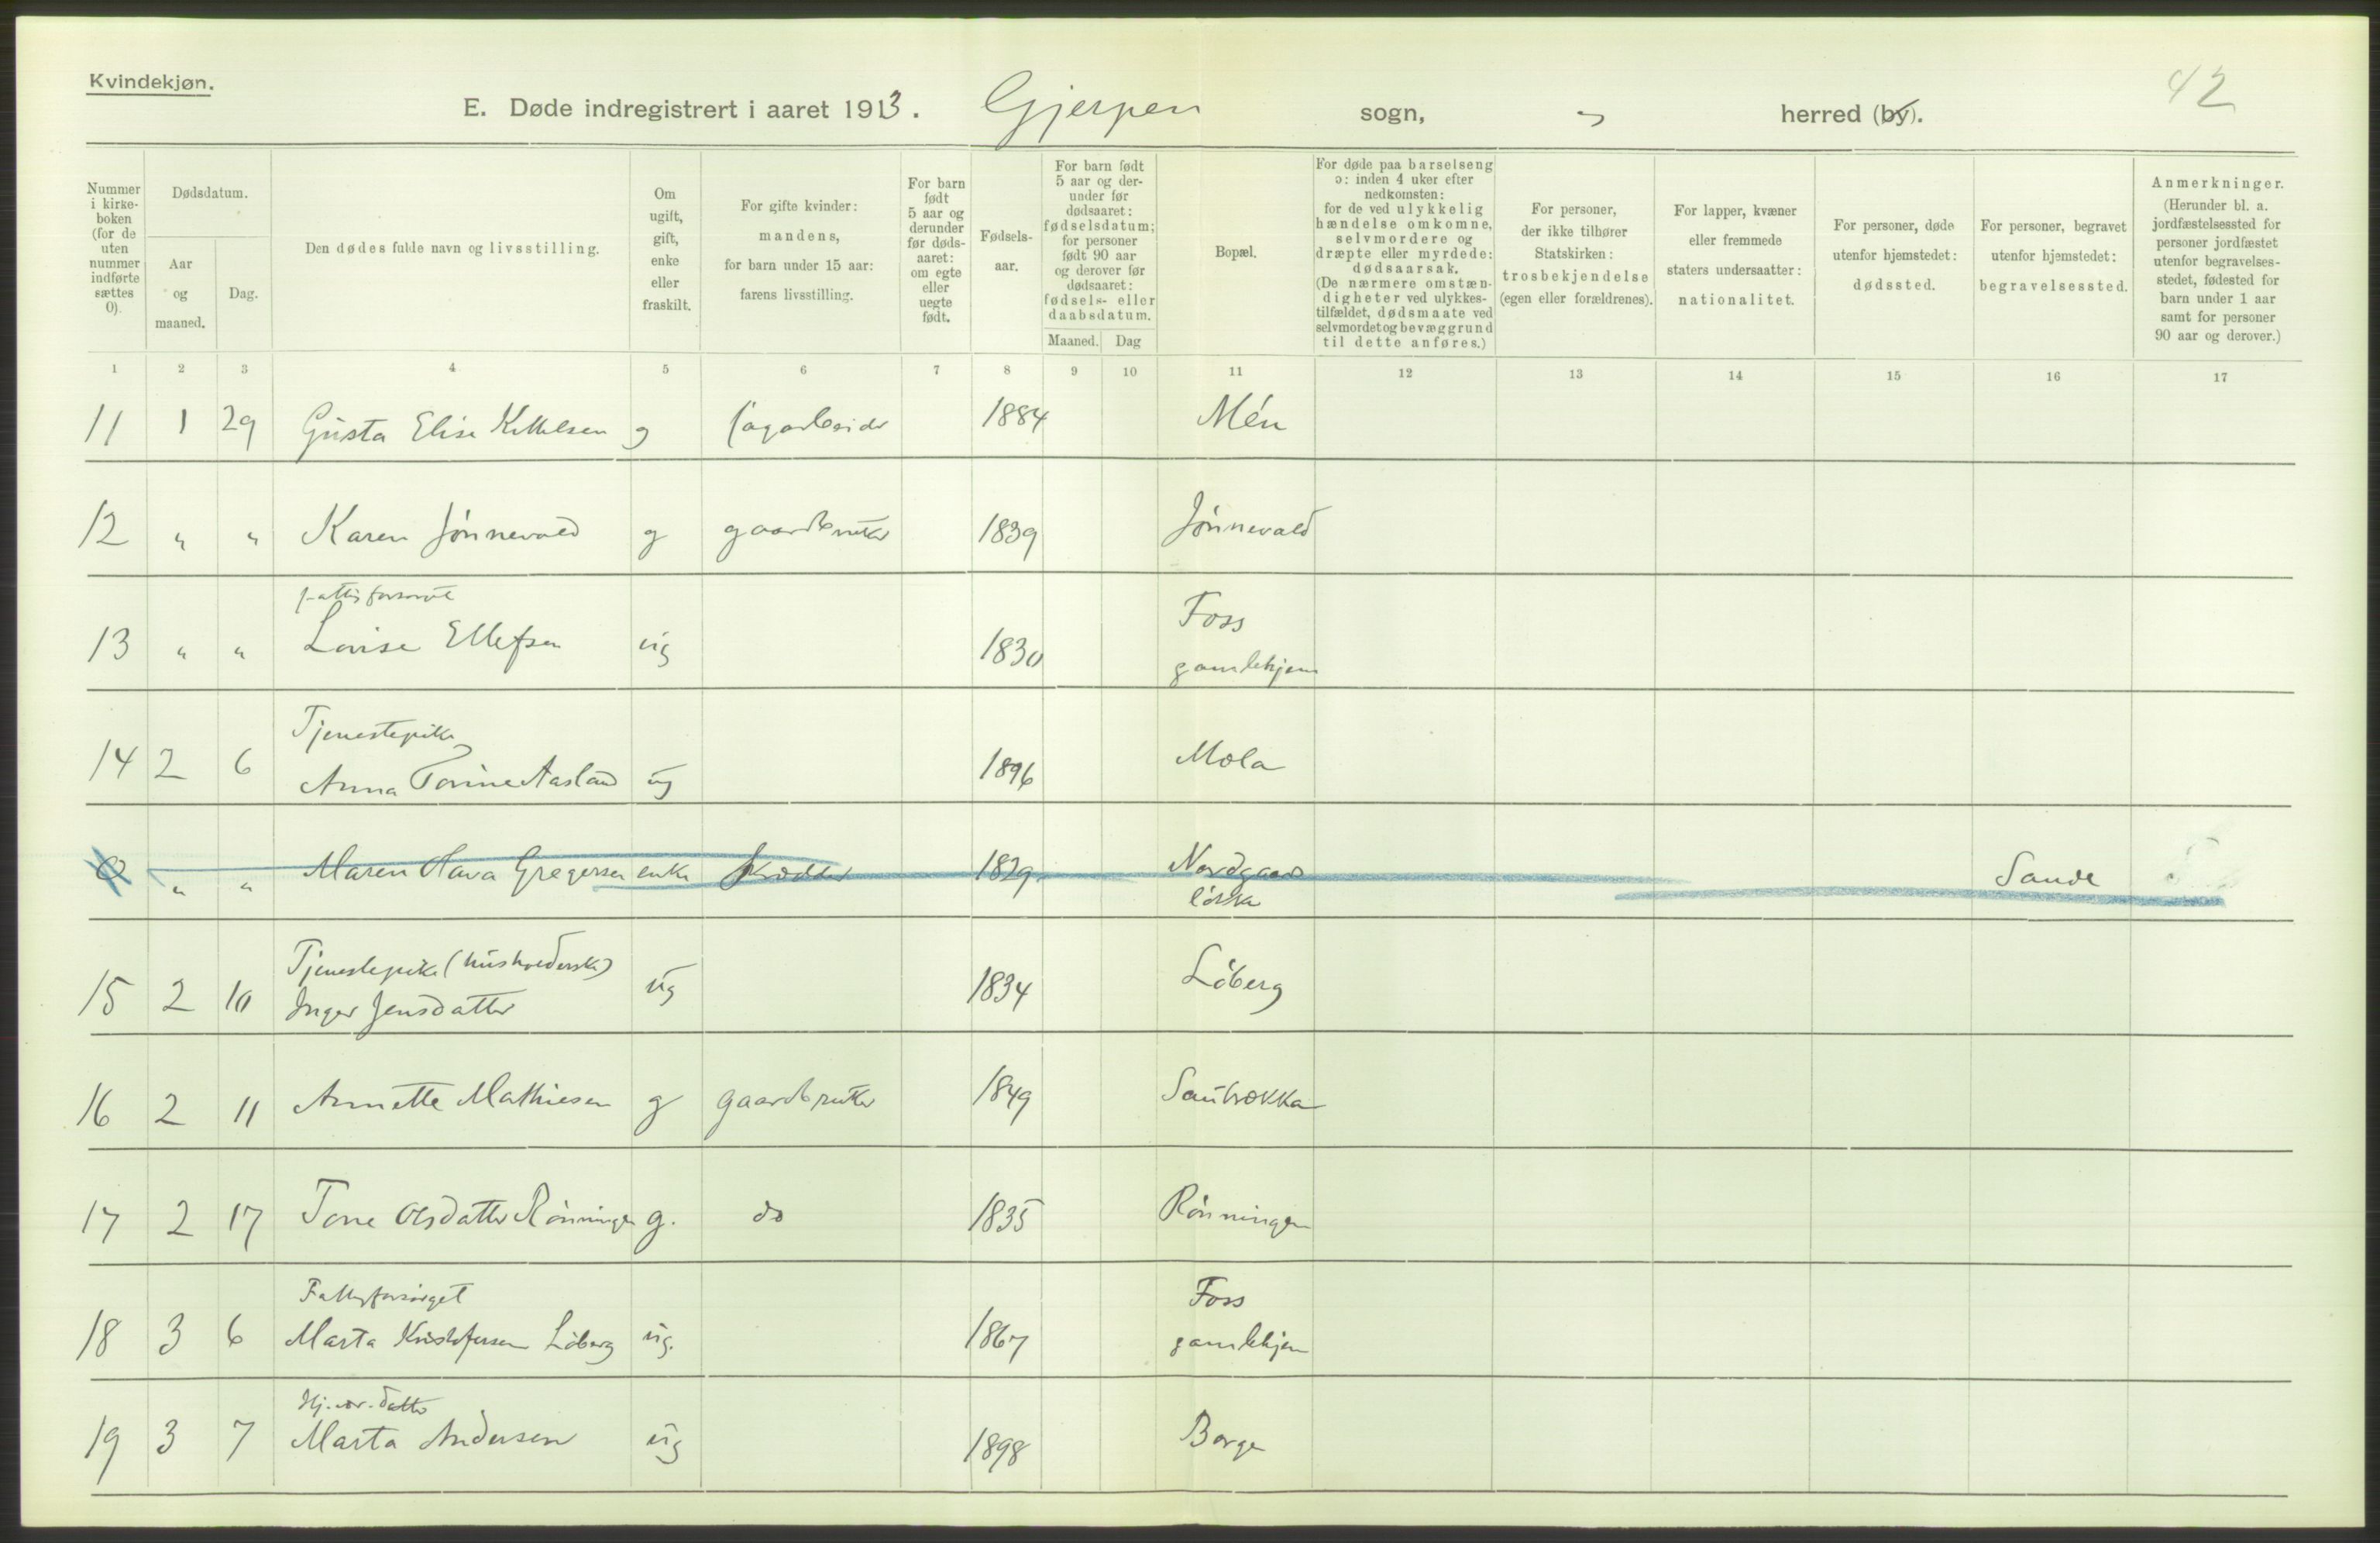 Kvindekjøn.
E. Døde indregistrert i aaret 1913. Gjerpen sogn, " herred (by).
42
Nummer i kirkeboken (for de uten nummer indførte sættes 0).
Dødsdatum.
Aar og maaned.
Dag.
Den dødes fulde navn og livsstilling.
Om ugift, gift, enke eller fraskilt.
For gifte kvinder: mandens, for barn under 15 aar: farens livsstilling.
For barn født 5 aar og derunder før dødsaaret: om egte eller uegte født.
Fødselsaar.
For barn født 5 aar og derunder før dødsaaret: fødselsdatum; for personer født 90 aar og derover før dødsaaret: fødsels- eller daabsdatum.
Maaned. Dag
Bopæl.
For døde paa barselseng ɔ: inden 4 uker efter nedkomsten: for de ved ulykkelig hændelse omkomne, selvmordere og dræpte eller myrdede: dødsaarsak. (De nærmere omstændigheter ved ulykkestilfældet, dødsmaate ved selvmordet og bevæggrund til dette anføres.)
For personer, der ikke tilhører Statskirken: trosbekjendelse (egen eller forældrenes).
For lapper, kvæner eller fremmede staters undersaatter: nationalitet.
For personer, døde utenfor hjemstedet: dødssted.
For personer, begravet utenfor hjemstedet: begravelsessted.
Anmerkninger. (Herunder bl. a. jordfæstelsessted for personer jordfæstet utenfor begravelsesstedet, fødested for barn under 1 aar samt for personer 90 aar og derover.)
1 2 3 4 5 6 7 8 9 10 11 12 13 14 15 16 17
11 1 29 Gusta Elise Kittilsen g sagarbeider 1884 Mén
12 " " Karen Jönnevald g gaardbruker 1839 Jönnevald
fattigforsörget
13 " " Lovise Ellefsen ug 1830 Foss
gamlehjem
Tjenestepike
14 2 6 Anna Torine Aasland ug 1896 Mola
0 " " Maren Olava Gregersen enke Skrædder 1829 Nordgaard
lökka
Sande
Tjenestepike (husholderske)
15 2 10 Inger Jensdatter ug 1834 Löberg
16 2 11 Annette Mathiesen g gaardbruker 1849 Saubrokka
17 2 17 Tone Olsdatter Rönningen g. do 1835 Rönningen
Fattigforsörget
18 3 6 Marta Kristofersen Löberg ug. 1867 Foss
gamlehjem
Hj.vær. datter
19 3 7 Marta Andersen ug 1898 Borge